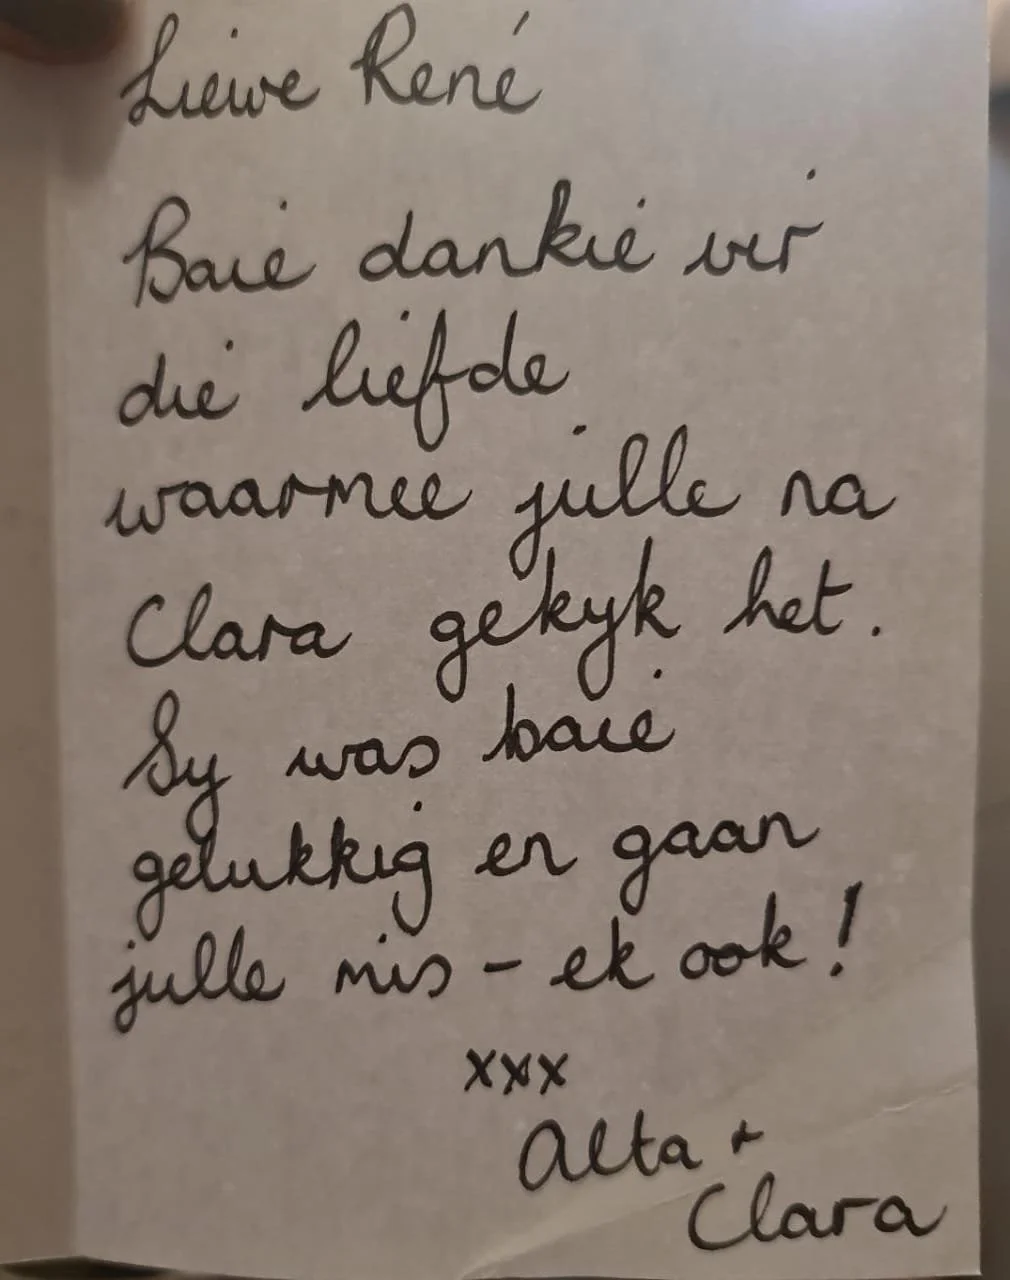 Liewe René
Baie dankie vir
die liefde
waarmee julle na
Clara gekyk het.
Sy was baie
gelukkig en gaan
julle mis - ek ook!
xxx
Alta +
Clara